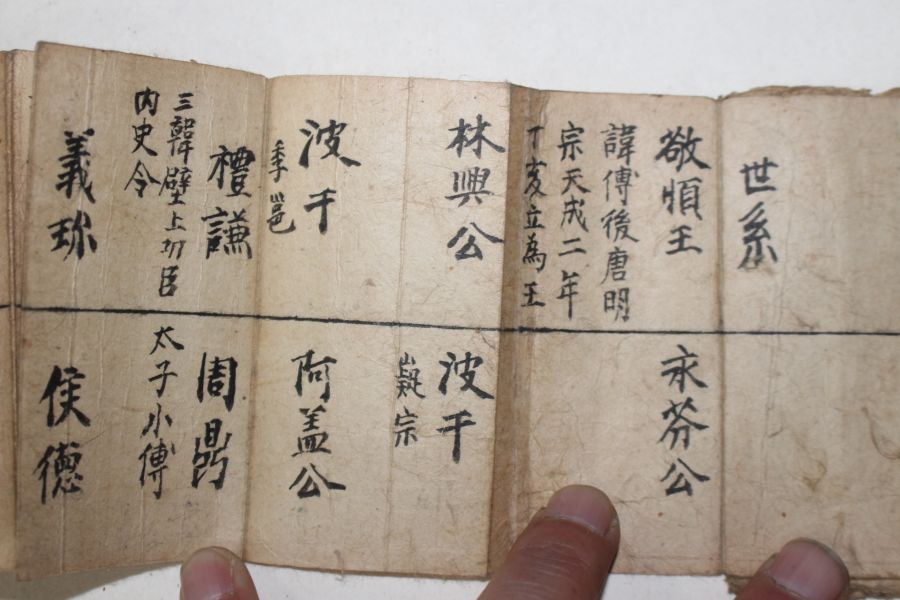 世系
敬順王
諱傅後唐明
宗天成二年
丁亥立為王
永芬公
林興公
波千
嶷宗
波千
季邕
阿盖公
禮謙
三韓壁上功臣
内史令
周鼎
太子小傅
義珎
侯德